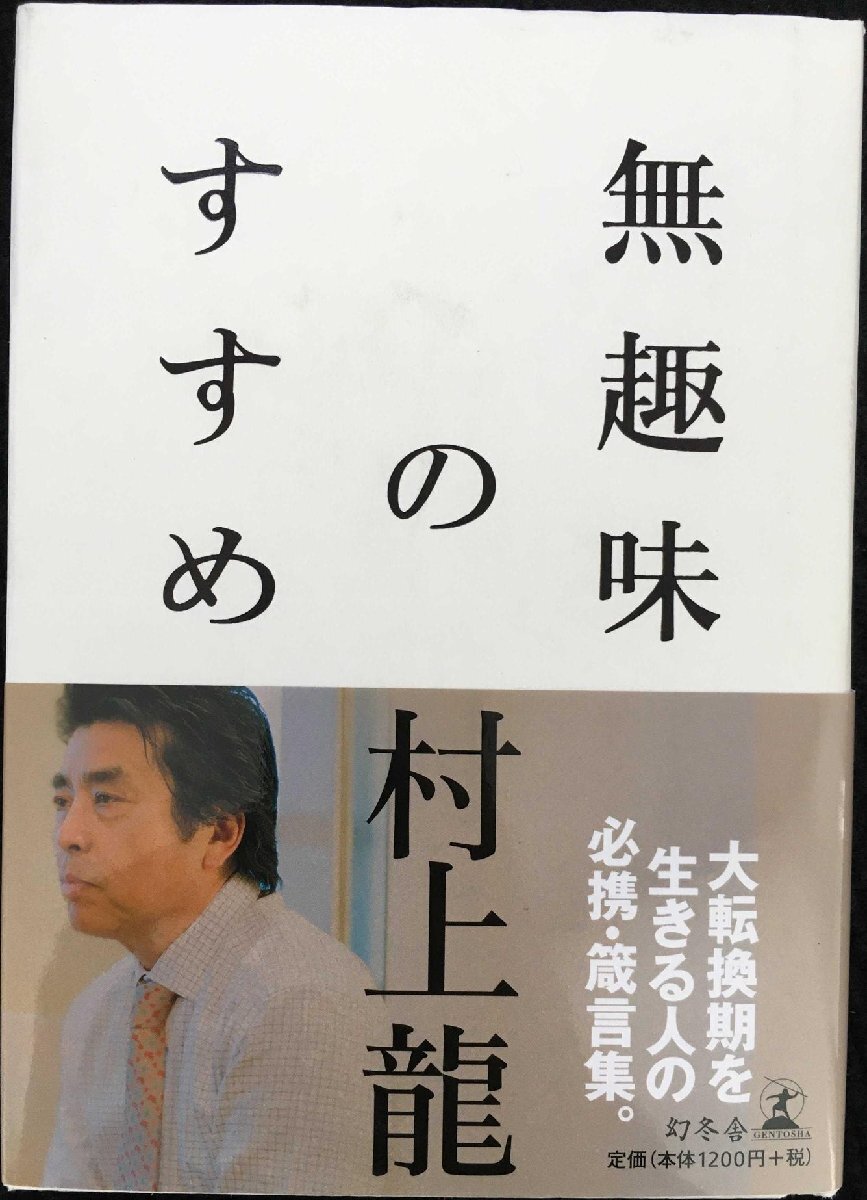 無趣味
の
すすめ
村上龍
大転換期を
生きる人の
必携・箴言集。
幻冬舎
GENTOSHA
定価(本体1200円+税)